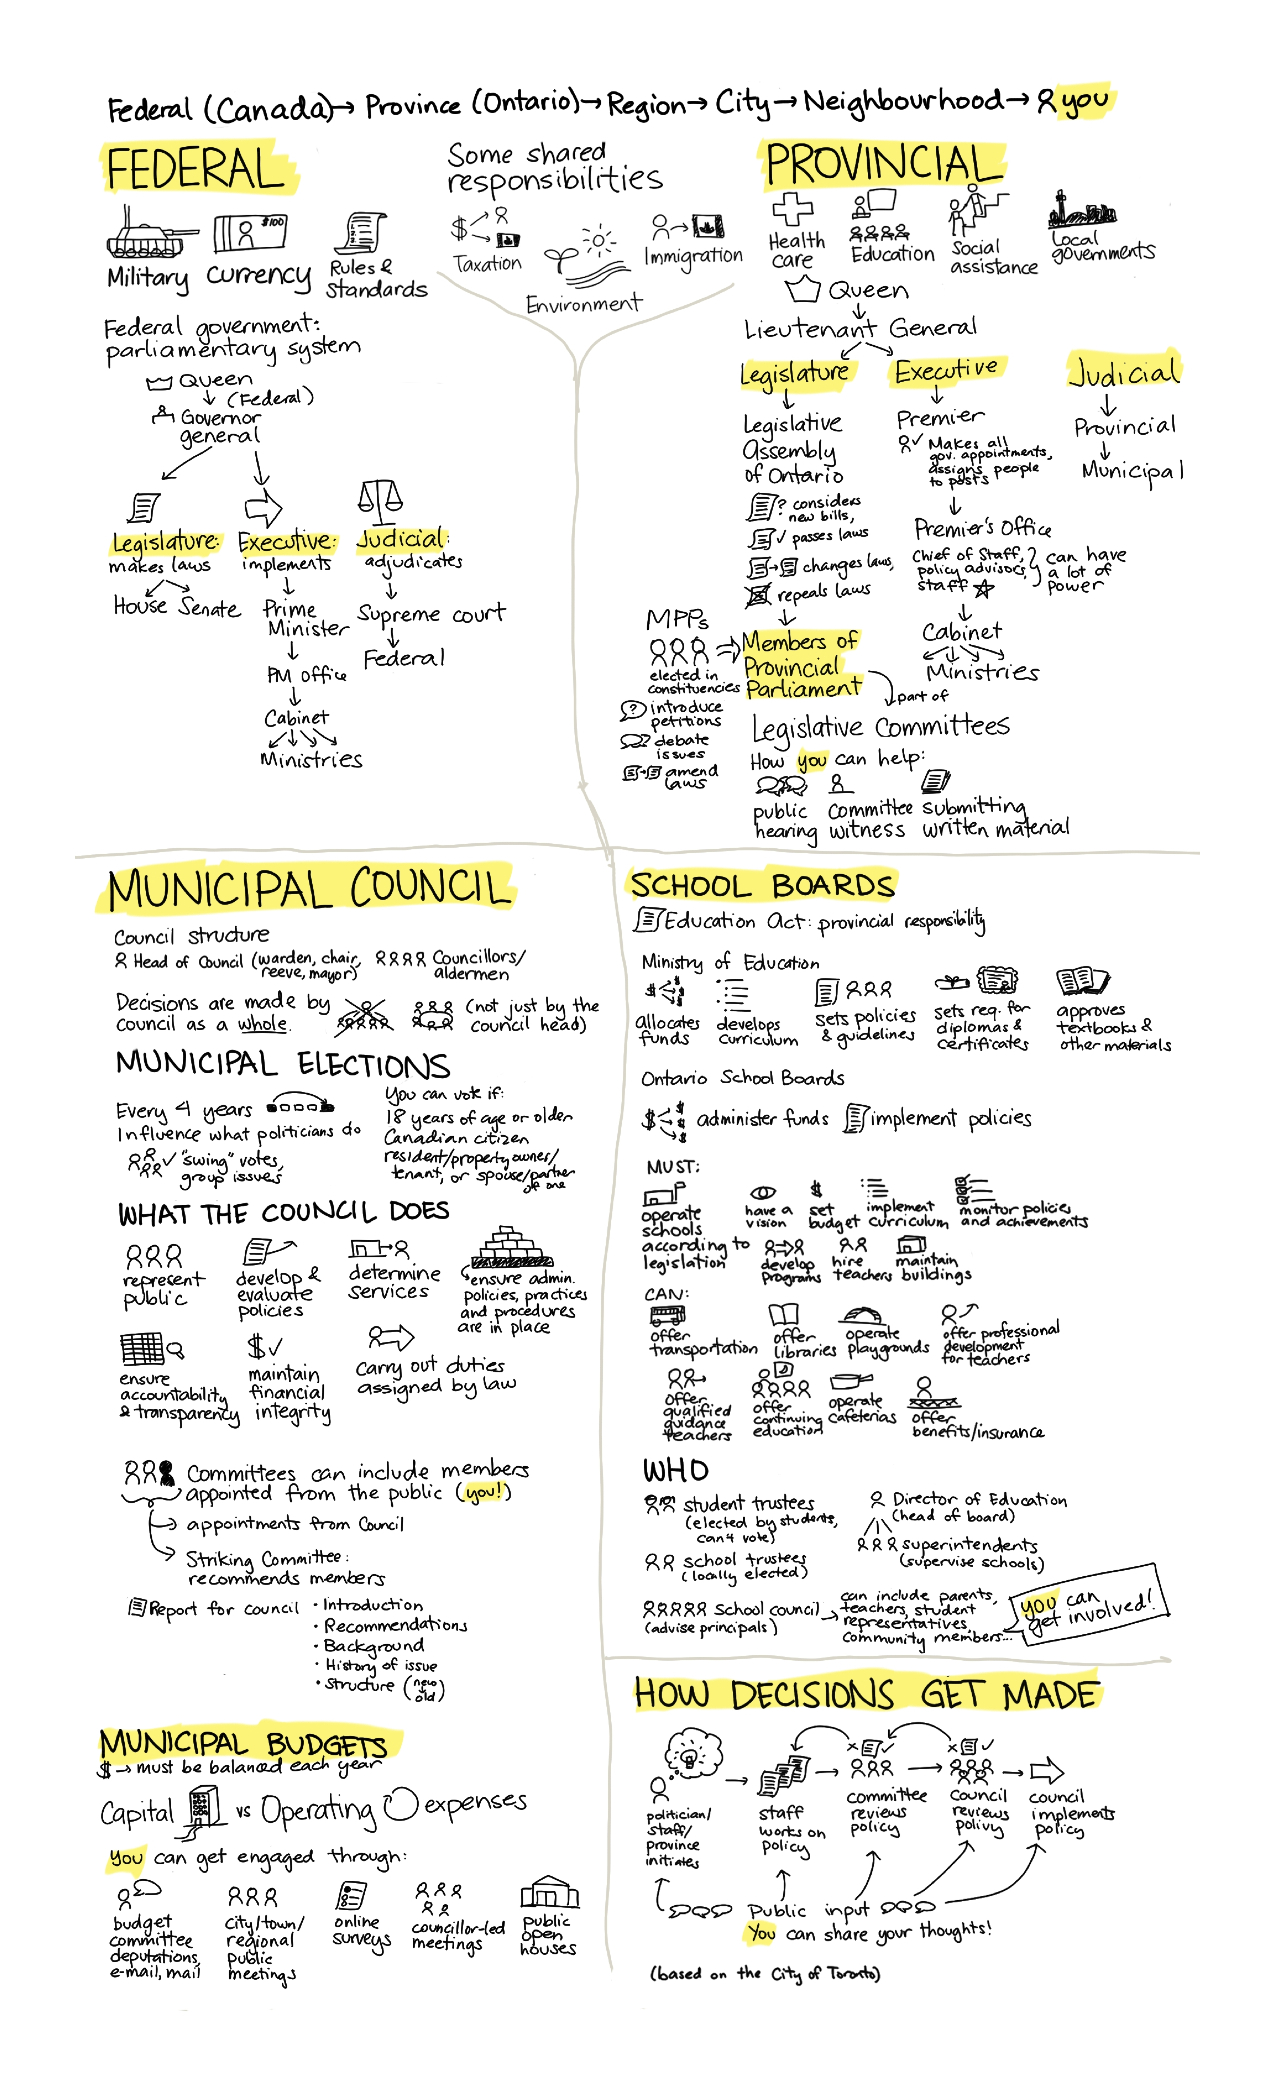 Federal (Canada)→ Province (Ontario)→ Region→ City→ Neighbourhood→ you
FEDERAL
Military
$100
Currency
Rules &
Standards
Federal government:
parliamentary system
Queen
(Federal)
Governor
general
Legislature:
makes laws
House Senate
Executive:
implements
Prime
Minister
PM office
Cabinet
Ministries
Judicial:
adjudicates
Supreme court
Federal
Some shared
responsibilities
$
Taxation
Environment
Immigration
PROVINCIAL
Health
care
Education
Social
assistance
Local
governments
Queen
Lieutenant General
Legislature
Legislative
Assembly
of Ontario
? considers
new bills,
passes laws
changes laws,
repeals laws
Members of
Provincial
Parliament
MPPs
elected in
constituencies
? introduce
petitions
debate
issues
amend
laws
part of
Legislative Committees
How you can help:
public
hearing
committee
witness
submitting
written material
Executive
Premier
Makes all
gov. appointments,
assigns people
to posts
Premier's Office
Chief of Staff,
policy advisors,
staff
can have
a lot of
power
Cabinet
Ministries
Judicial
Provincial
Municipal
MUNICIPAL COUNCIL
Council structure
Head of Council (warden, chair,
reeve, mayor)
Councillors/
aldermen
Decisions are made by
council as a whole.
(not just by the
council head)
MUNICIPAL ELECTIONS
Every 4 years
Influence what politicians do
"swing" votes,
group issues
You can vote if:
18 years of age or older
Canadian citizen
resident/property owner/
tenant, or spouse/partner
of one
WHAT THE COUNCIL DOES
represent
public
develop &
evaluate
policies
determine
services
ensure admin.
policies, practices
and procedures
are in place
ensure
accountability
& transparency
$✓
maintain
financial
integrity
carry out duties
assigned by law
Committees can include members
appointed from the public (you!)
appointments from Council
Striking Committee:
recommends members
Report for council
• Introduction
• Recommendations
• Background
• History of issue
• Structure (new
old)
MUNICIPAL BUDGETS
$→ must be balanced each year
Capital vs Operating expenses
you can get engaged through:
budget
committee
deputations,
e-mail, mail
city/town/
regional
public
meetings
online
surveys
councillor-led
meetings
public
open
houses
SCHOOL BOARDS
Education Act: provincial responsibility
Ministry of Education
allocates
funds
develops
curriculum
sets policies
& guidelines
sets req. for
diplomas &
certificates
approves
textbooks &
other materials
Ontario School Boards
administer funds
implement policies
MUST:
operate
schools
according to
legislation
have a
vision
$
set
budget
implement
curriculum
monitor policies
and achievements
develop
programs
hire
teachers
maintain
buildings
CAN:
offer
transportation
offer
libraries
operate
playgrounds
offer professional
development
for teachers
offer
qualified
guidance
teachers
offer
continuing
education
operate
cafeterias
offer
benefits/insurance
WHO
student trustees
(elected by students,
can't vote)
school trustees
(locally elected)
Director of Education
(head of board)
superintendents
(supervise schools)
School council
(advise principals)
can include parents,
teachers, student
representatives,
community members...
you can
get involved!
HOW DECISIONS GET MADE
politician/
staff/
province
initiates
staff
works on
policy
committee
reviews
policy
council
reviews
polivy
council
implements
policy
Public input
You can share your thoughts!
(based on the City of Toronto)